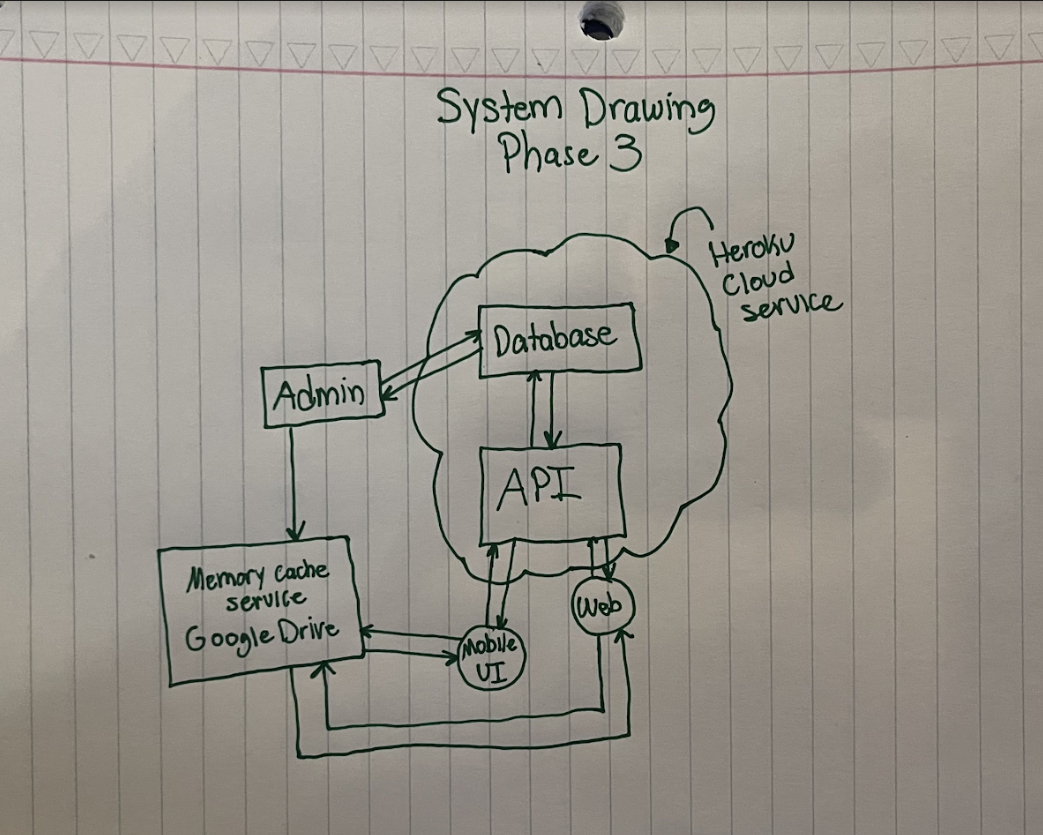 System Drawing
Phase 3
Heroku
Cloud
service
Database
Admin
API
Memory cache
service
Google Drive
Web
Mobile
UI